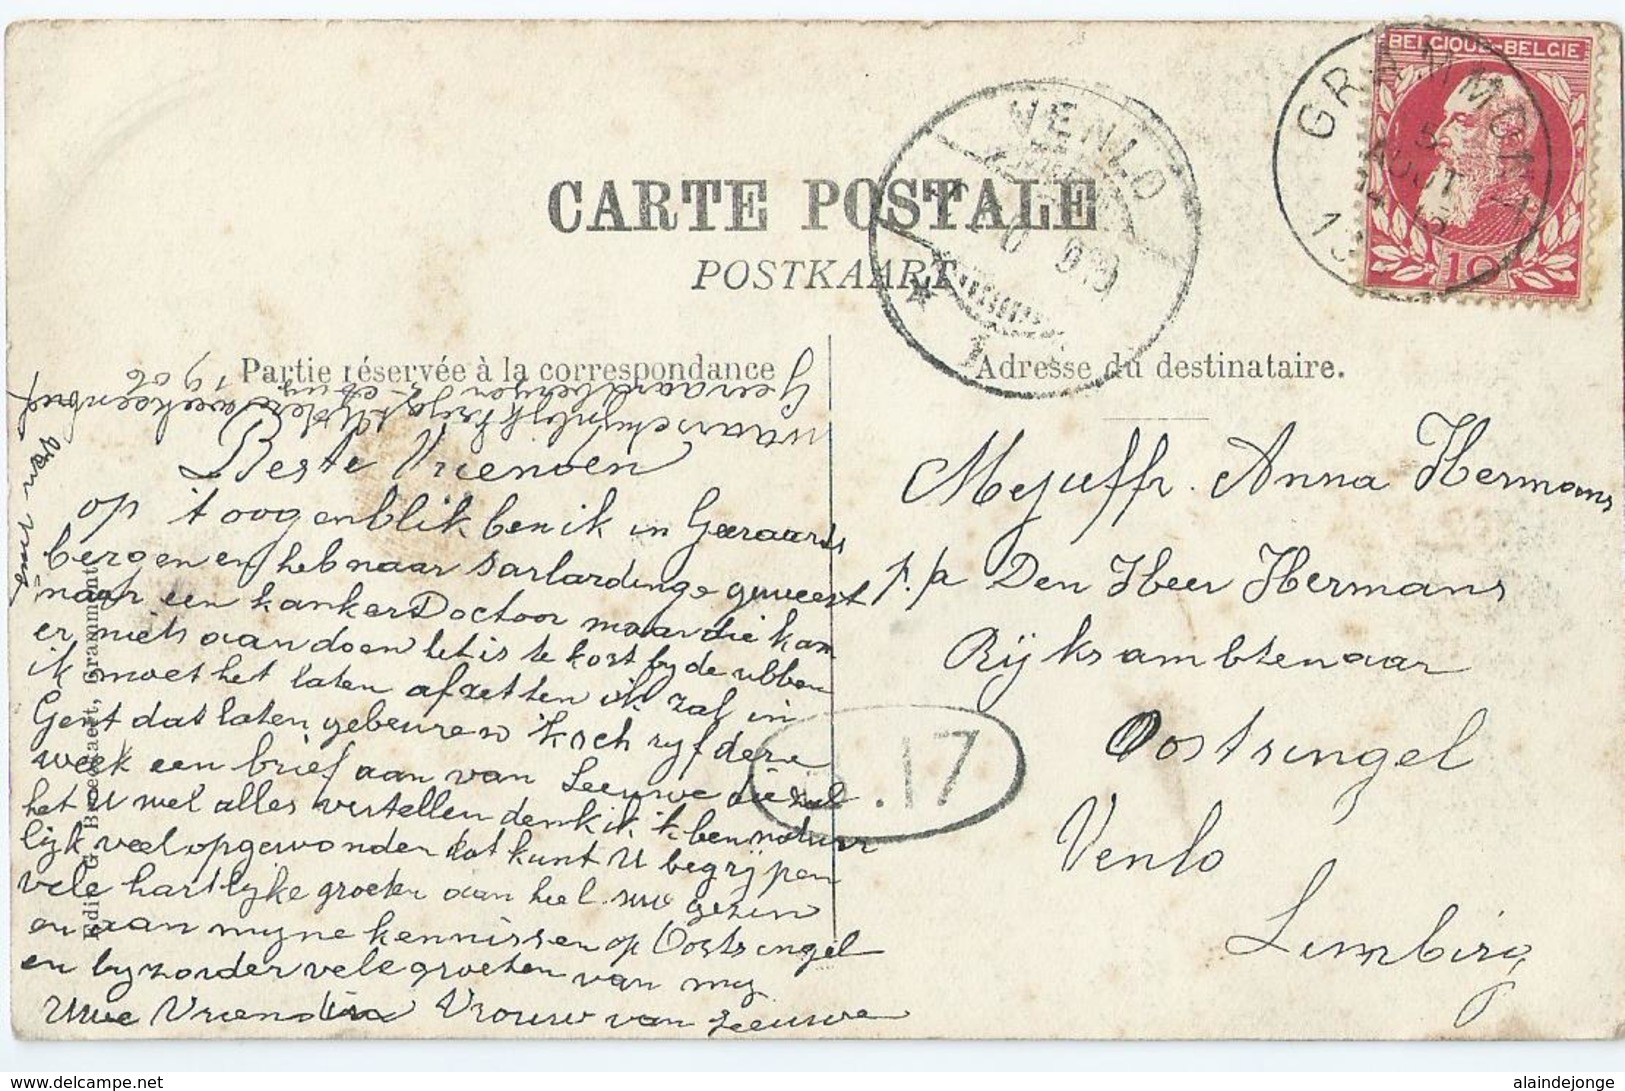 CARTE POSTALE
POSTKAART
Partie réservée à la correspondance
Adresse du destinataire.
BELGIQUE-BELGIE
10
GRAMMONT
5
AOUT
VENLO
1
17
Edit. G. Broeckaert, Grammont
Geeraardbergen
1906
Beste Vrienden
op 't oogenblik ben ik in Geeraards
bergen en heb naar Sarlardinge geweest
naar een kanker Doctoor maar die kan
er niets aan doen let is te kort by de ubben
ik moet het laten afzetten ik zal in
Gent dat laten gebeuren 'k sch ryf dere
week een brief aan van Leeuwe die zal
het U wel alles vertellen denk ik 'k ben natuur
lijk veel opgewonden dat kunt U begrijpen
vele hartlijke groeten aan heel uw gezin
en aan myne kennissen op Oostsingel
en byzonder vele groeten van my
Uwe Vriendin Vrouw van Leeuwe
Mejuffr. Anna Hermans
p/a Den Heer Hermans
Rijksambtenaar
Oostsingel
Venlo
Limburg
delcampe.net
alaindejonge